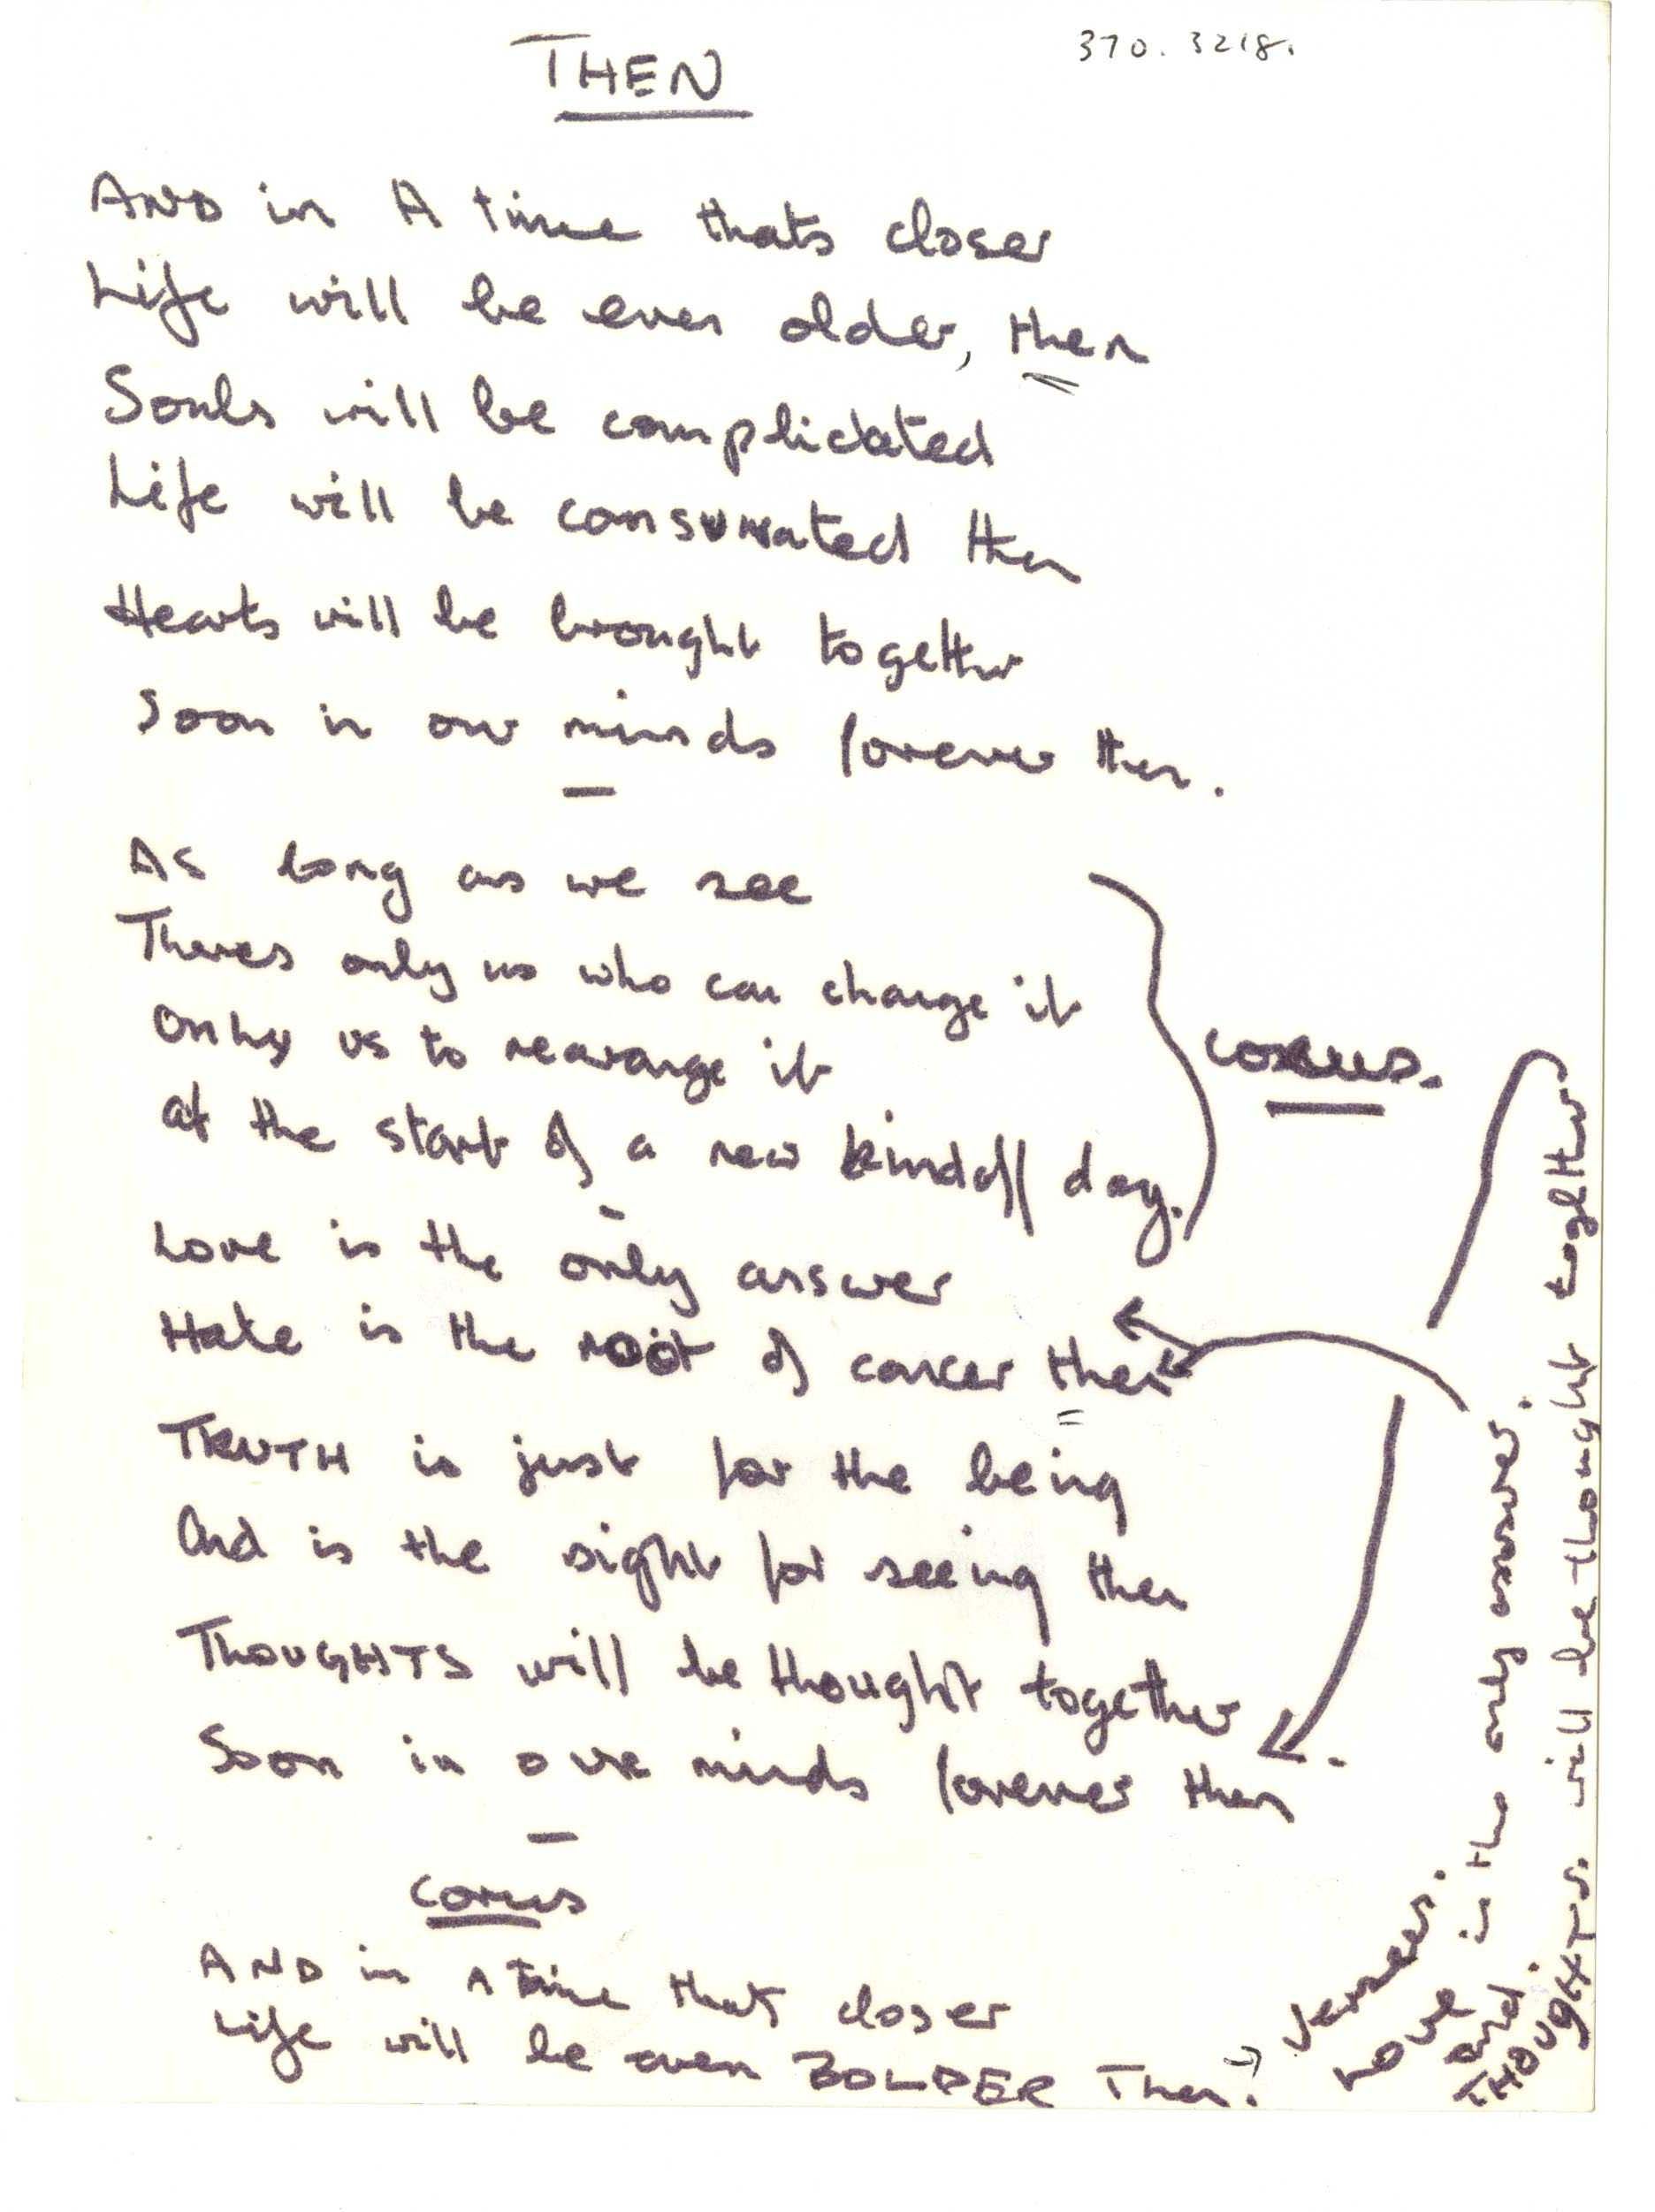 THEN
370. 3218.
AND in A time thats closer
Life will be even older, then
Souls will be complicated
Life will be consumated then
Hearts will be brought together
Soon in our minds forever then.
As long as we see
Theres only us who can change it
Only us to rearange it
at the start of a new kindoff day.
corus.
Love is the only answer
Hate is the root of cancer then
TRUTH is just for the being
And is the sight for seeing then
THOUGHTS will be thought together
Soon in our minds forever then
corus
AND in A time thats closer
Life will be even BOLDER Then.
verses.
Love is the only answer.
and.
THOUGHTS. will be thought together